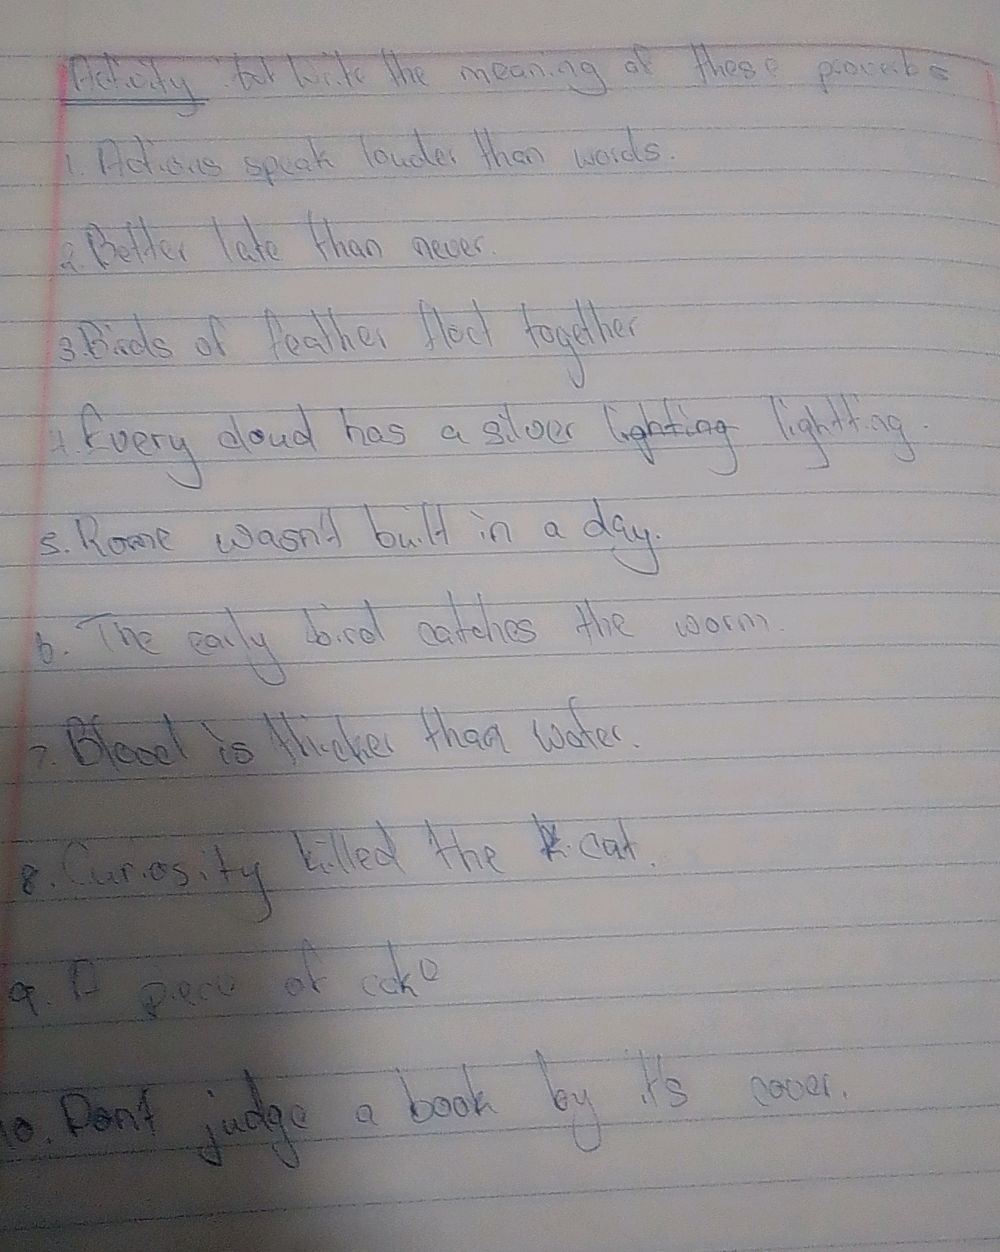 Activity Write the meaning of these proverbs
1. Actions speak louder than words.
2. Better late than never.
3. Birds of feather flock together
4. Every cloud has a silver lighting lightting.
5. Rome wasn't built in a day.
6. The early bird catches the worm.
7. Blood is thicker than water.
8. Curiosity killed the cat.
9. A piece of cake
10. Dont judge a book by it's cover.